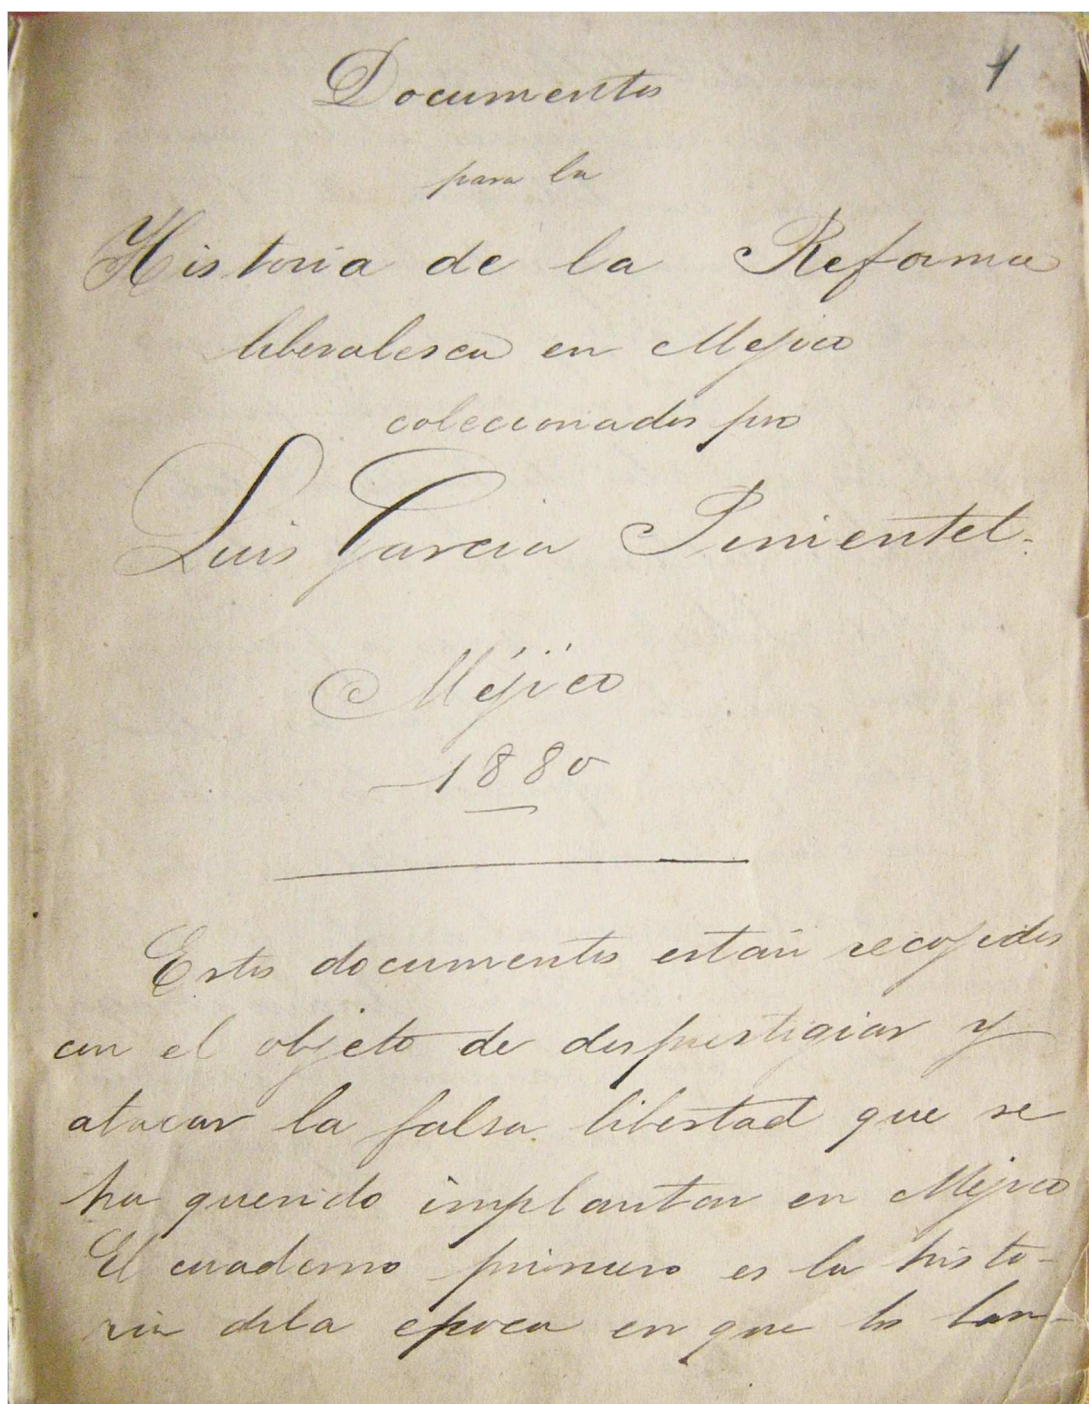 1
Documentos
para la
Historia de la Reforma
liberalesca en Mejico
coleccionados por
Luis Garcia Pimentel.
Méjico
1880
Estos documentos están recojidos
con el objeto de desprestigiar y
atacar la falsa libertad que se
ha querido implantar en Mejico
El cuaderno primero es la histo-
ria dela epoca en que los